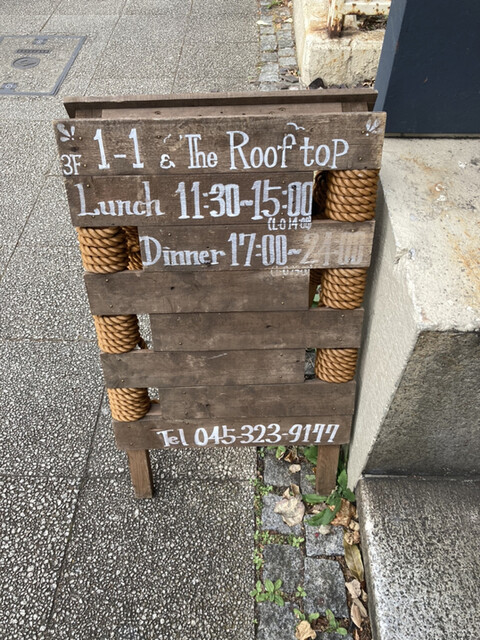 3F 1-1 & The Rooftop
Lunch 11:30~15:00
(L.O 14:00)
Dinner 17:00~24:00
Tel 045-323-9177